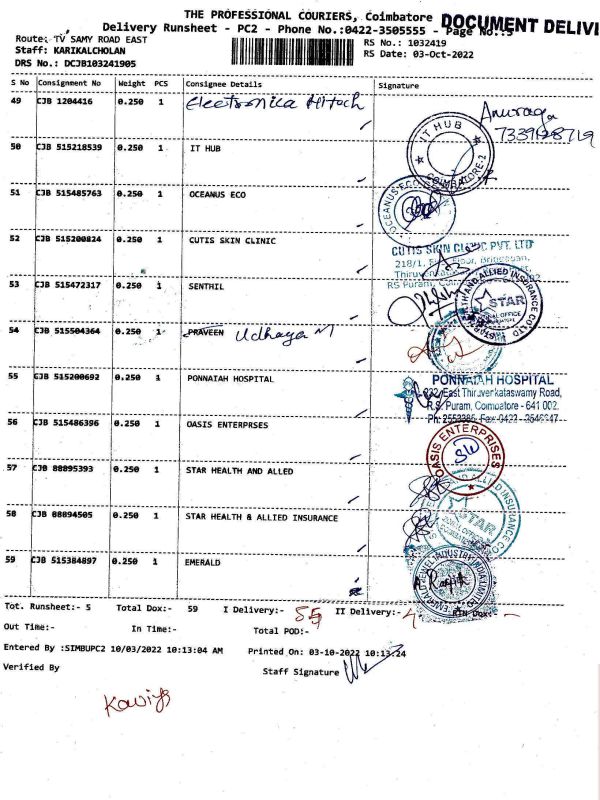 THE PROFESSIONAL COURIERS, Coimbatore DOCUMENT DELIVI
Delivery Runsheet - PC2 - Phone No.:0422-3505555 - Page No.:5
Route: TV SAMY ROAD EAST RS No.: 1032419
Staff: KARIKALCHOLAN RS Date: 03-Oct-2022
DRS No.: DCJB103241905
S No Consignment No Weight PCS Consignee Details Signature
49 CJB 1204416 0.250 1 Electronica Hitech
Anuraga
7339128719
50 CJB 515218539 0.250 1 IT HUB
IT HUB COIMBATORE-2
51 CJB 515485763 0.250 1 OCEANUS ECO
OCEANUS-ECO
52 CJB 515200824 0.250 1 CUTIS SKIN CLINIC
CUTIS SKIN CLINIC PVT. LTD
218/1, Floor,
RS Puram,
53 CJB 515472317 0.250 1 SENTHIL
STAR AND ALLIED INSURANCE CO LTD
54 CJB 515504364 0.250 1 PRAVEEN Udhaya M
55 CJB 515200692 0.250 1 PONNAIAH HOSPITAL
PONNAIAH HOSPITAL
232, East Thiruvenkataswamy Road,
R.S. Puram, Coimbatore - 641 002.
56 CJB 515486396 0.250 1 OASIS ENTERPRSES
OASIS ENTERPRISES
57 CJB 88895393 0.250 1 STAR HEALTH AND ALLED
58 CJB 88894505 0.250 1 STAR HEALTH & ALLIED INSURANCE
STAR ALLIED INSURANCE CO
59 CJB 515384897 0.250 1 EMERALD
Tot. Runsheet:- 5 Total Dox:- 59 I Delivery:- 55 II Delivery:- 4 RTN Dox:- -
Out Time:- In Time:- Total POD:-
Entered By :SIMBUPC2 10/03/2022 10:13:04 AM Printed On: 03-10-2022 10:13:24
Verified By Staff Signature
Kaviya